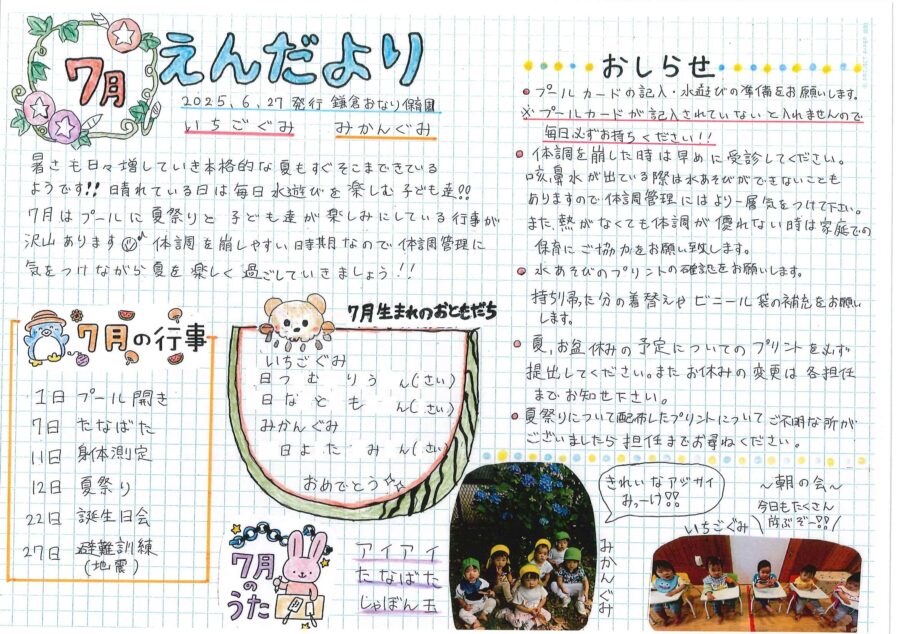 7月
えんだより
2025.6.27 発行 鎌倉おなり保育園
いちごぐみ みかんぐみ
暑さも日々増していき本格的な夏もすぐそこまできている
ようです!! 晴れている日は毎日水遊びを楽しむ子ども達!!
7月はプールに夏祭りと子ども達が楽しみにしている行事が
沢山あります 体調を崩しやすい時期なので体調管理に
気をつけながら夏を楽しく過ごしていきましょう!!
7月の行事
1日 プール開き
7日 たなばた
11日 身体測定
12日 夏祭り
22日 誕生日会
27日 避難訓練
(地震)
7月生まれのおともだち
いちごぐみ
日つむ りう ん(さい)
日なと も ん(さい)
みかんぐみ
日よた み ん(さい)
おめでとう
7月の
うた
アイアイ
たなばた
しゃぼん玉
おしらせ
● プールカードの記入・水遊びの準備をお願いします。
※プールカードが記入されていないと入れませんので
毎日必ずお持ちください!!
● 体調を崩した時は早めに受診してください。
咳、鼻水が出ている際は水あそびができないことも
ありますので体調管理にはより一層気をつけて下さい。
また、熱がなくても体調が優れない時は家庭での
保育にご協力をお願い致します。
● 水あそびのプリントの確認をお願いします。
持ち帰った分の着替えやビニール袋の補充をお願い
します。
● 夏、お盆休みの予定についてのプリントを必ず
提出してください。またお休みの変更は各担任
までお知せ下さい。
● 夏祭りについて配布したプリントについてご不明な所が
ございましたら担任までお尋ねください。
きれいなアジサイ
みっーけ!!
みかんぐみ
〜朝の会〜
今日もたくさん
遊ぶぞー!!
いちごぐみ